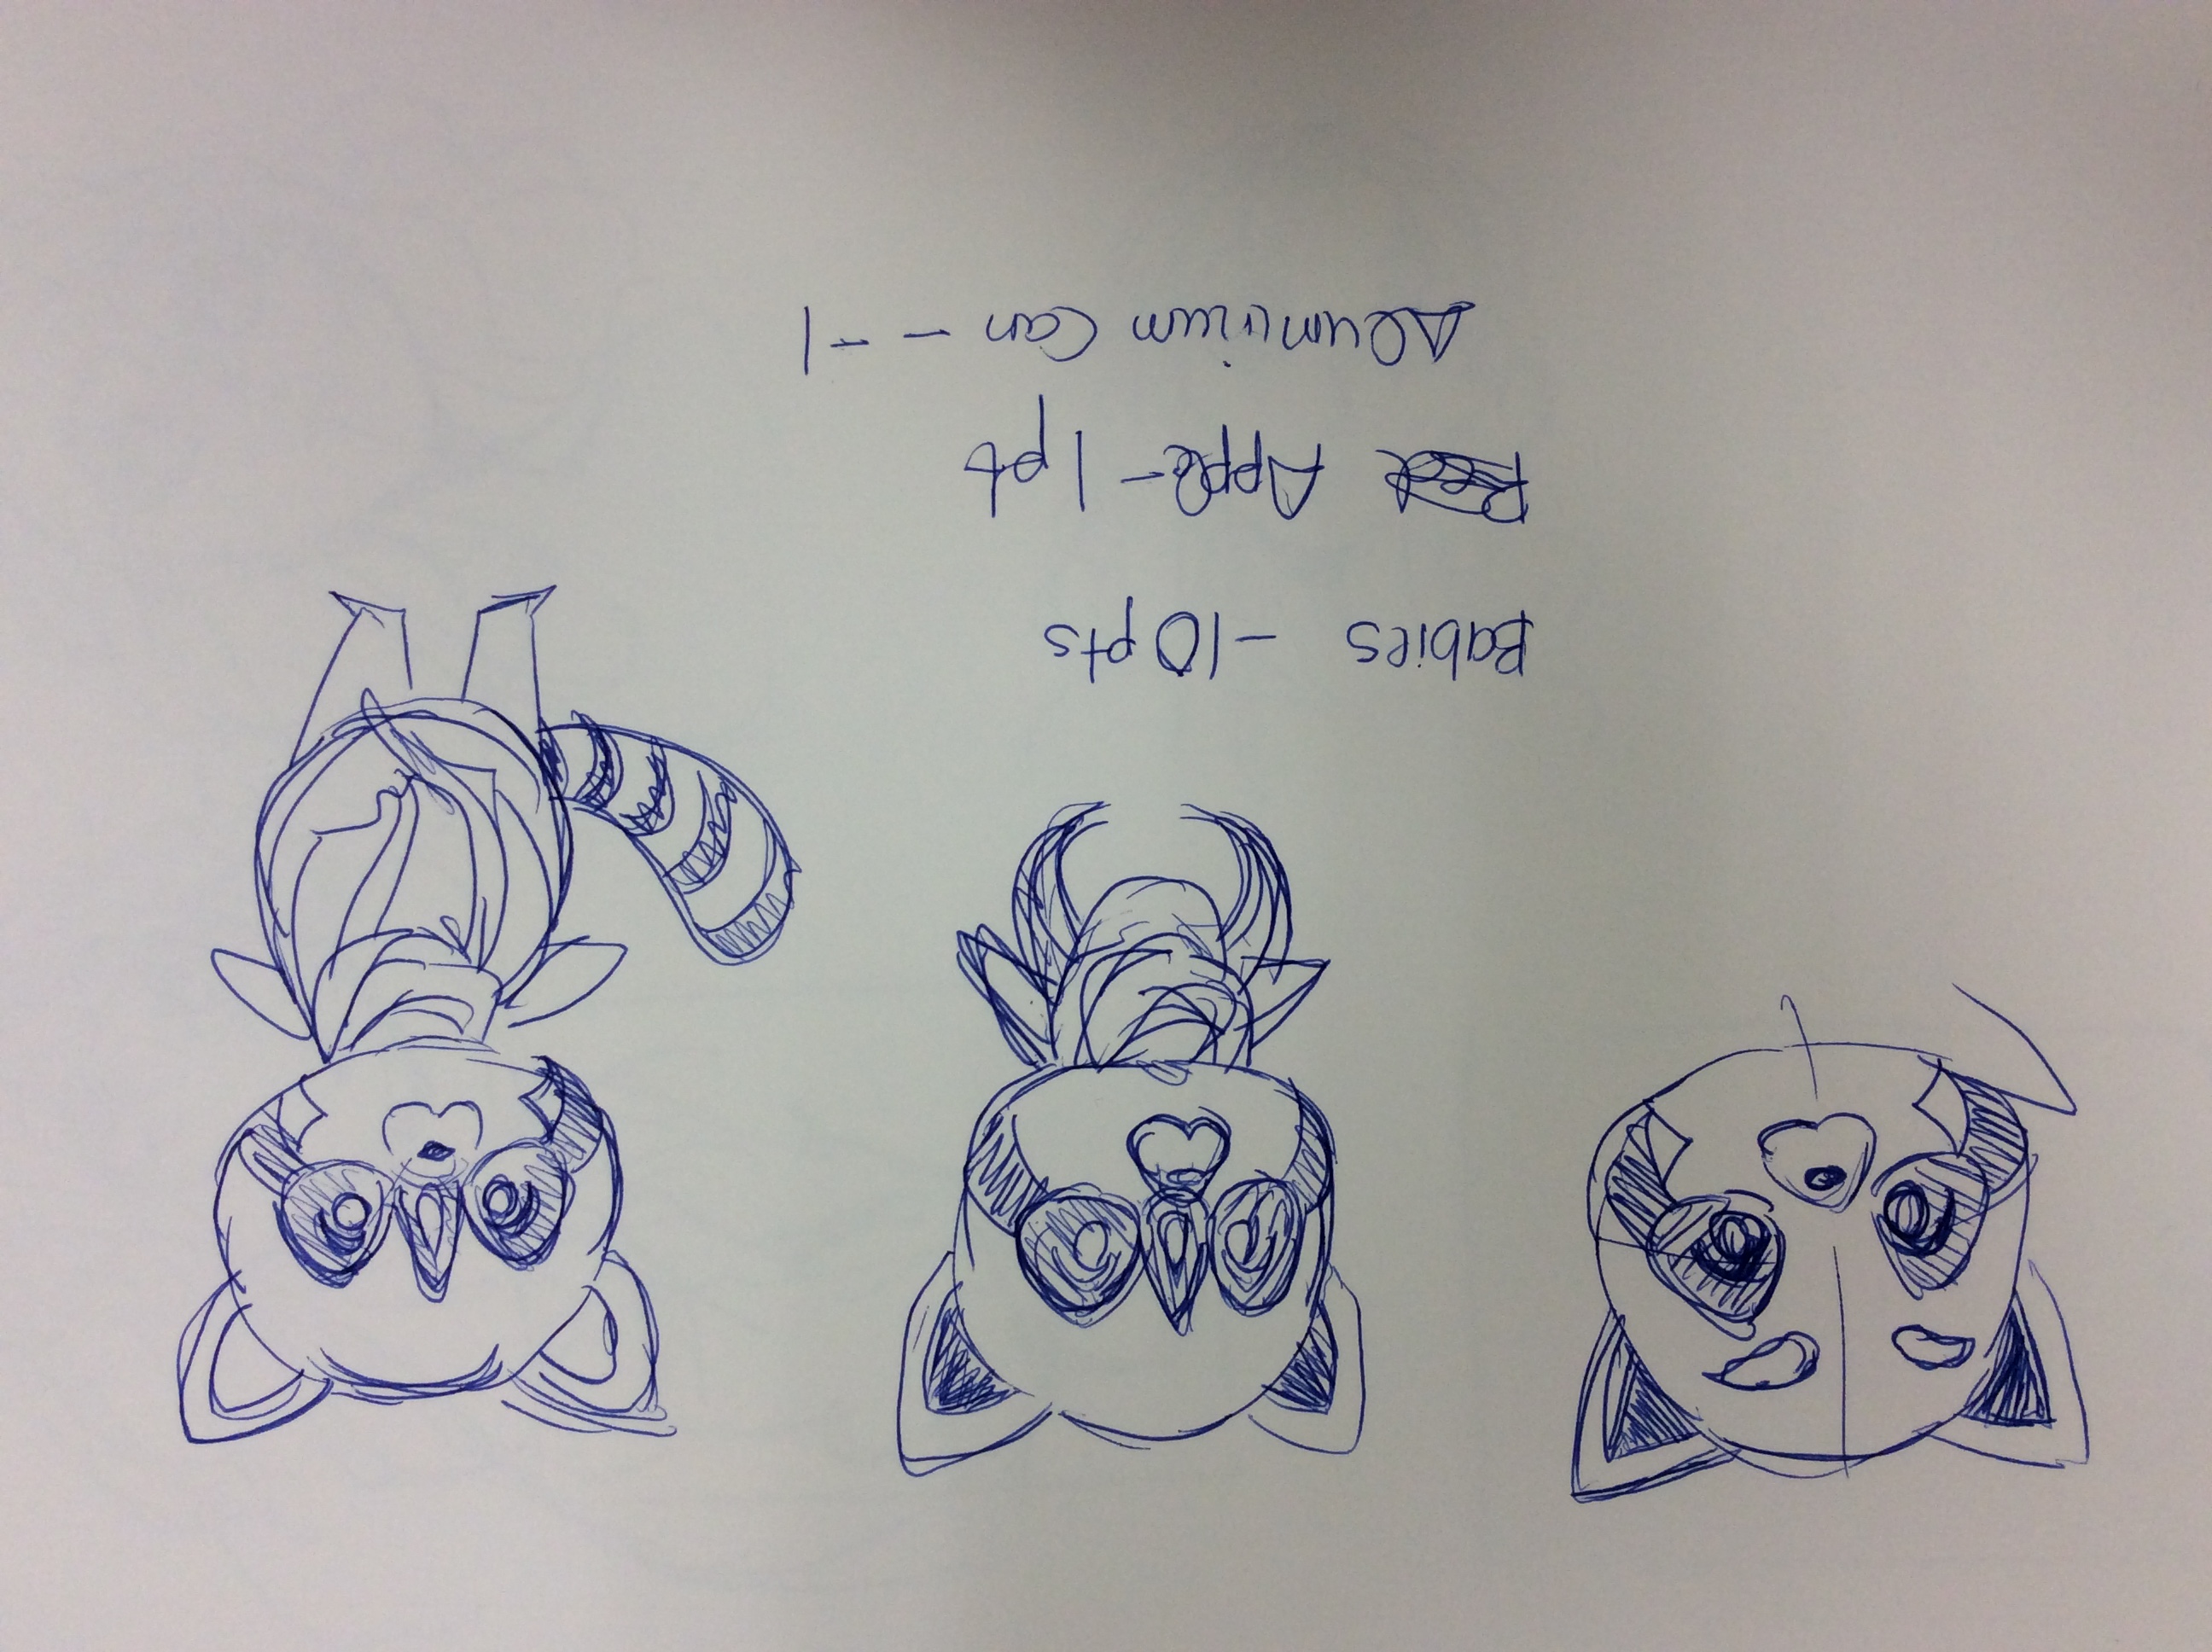 Babies - 10 pts
Apple - 1 pt
Aluminium Can - -1